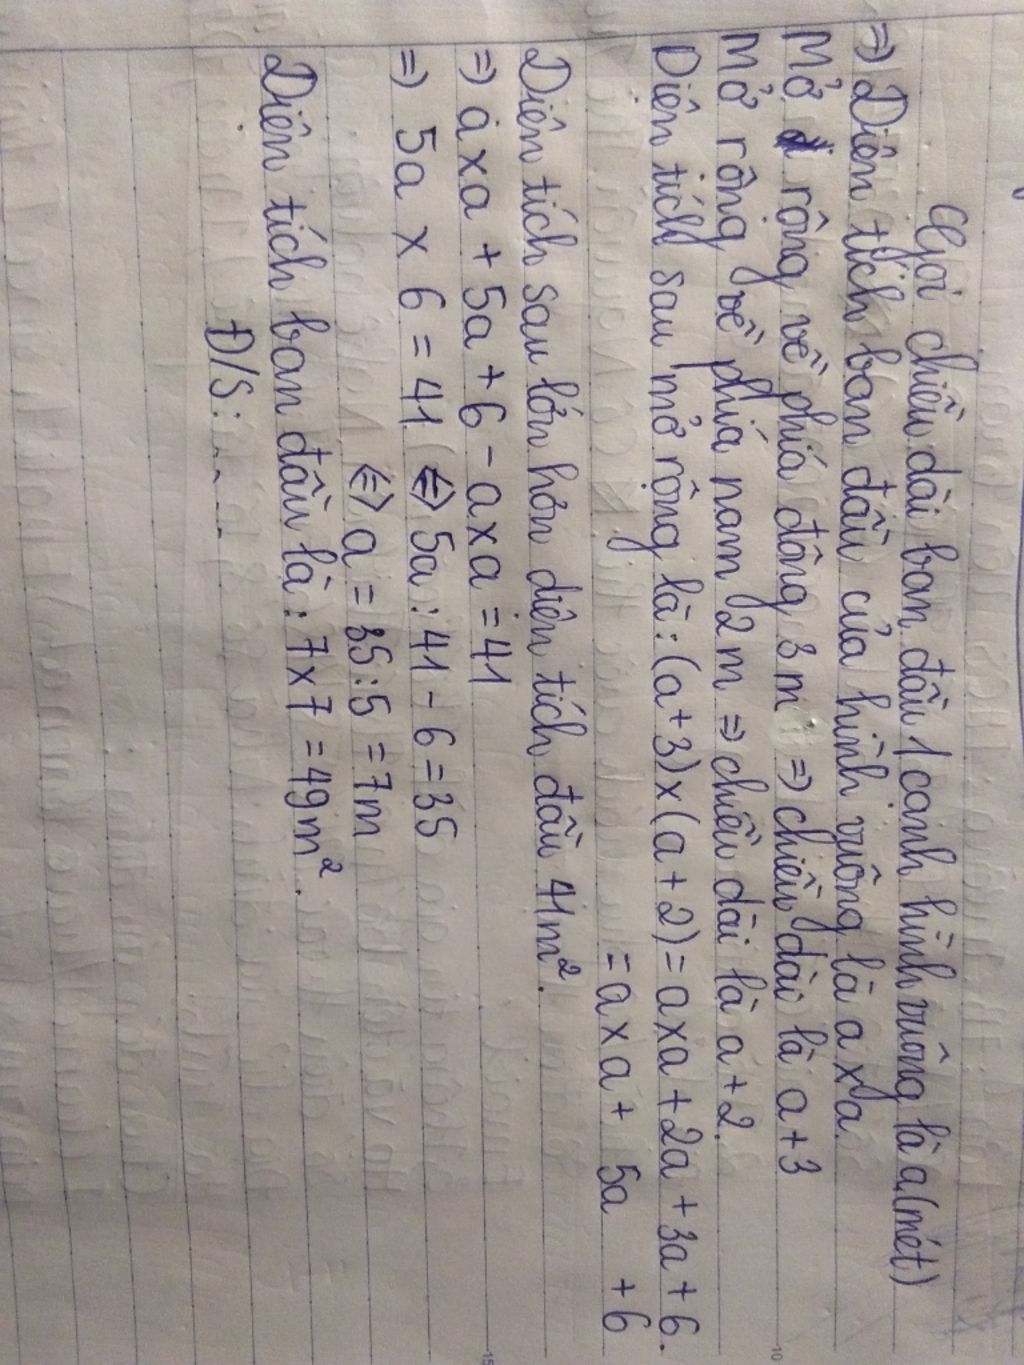 Gọi chiều dài ban đầu 1 cạnh hình vuông là a (mét)
=> Diện tích ban đầu của hình vuông là a x a.
Mở rộng về phía đông 3 m => chiều dài là a + 3
Mở rộng về phía nam 2 m => chiều dài là a + 2.
Diện tích sau mở rộng là : (a + 3) x (a + 2) = a x a + 2a + 3a + 6.
= a x a + 5a + 6
Diện tích sau lớn hơn diện tích đầu 41m².
=> a x a + 5a + 6 - a x a = 41
=> 5a x 6 = 41 <=> 5a : 41 - 6 = 35
<=> a = 35 : 5 = 7m
Diện tích ban đầu là : 7 x 7 = 49m².
Đ/S : ....